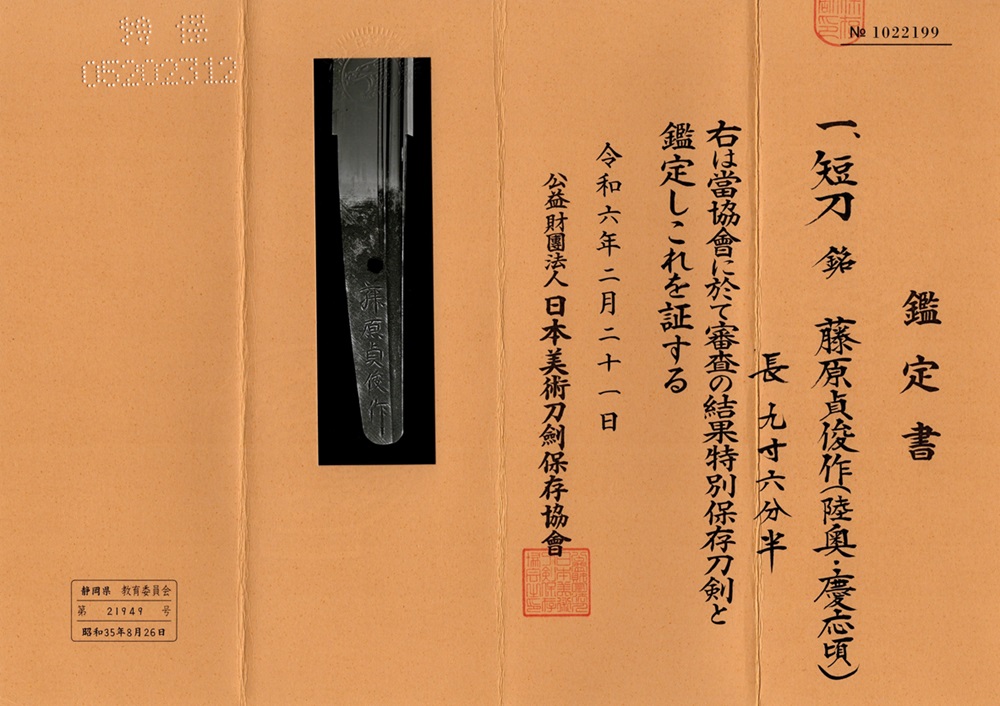 № 1022199
鑑定書
一、短刀 銘 藤原貞俊作(陸奥・慶応頃)
長 九寸六分半
右は當協會に於て審査の結果特別保存刀剣と
鑑定しこれを証する
令和六年二月二十一日
公益財團法人 日本美術刀劍保存協會
藤原貞俊作
特保
05202312
静岡県 教育委員会
第 21949 号
昭和35年8月26日